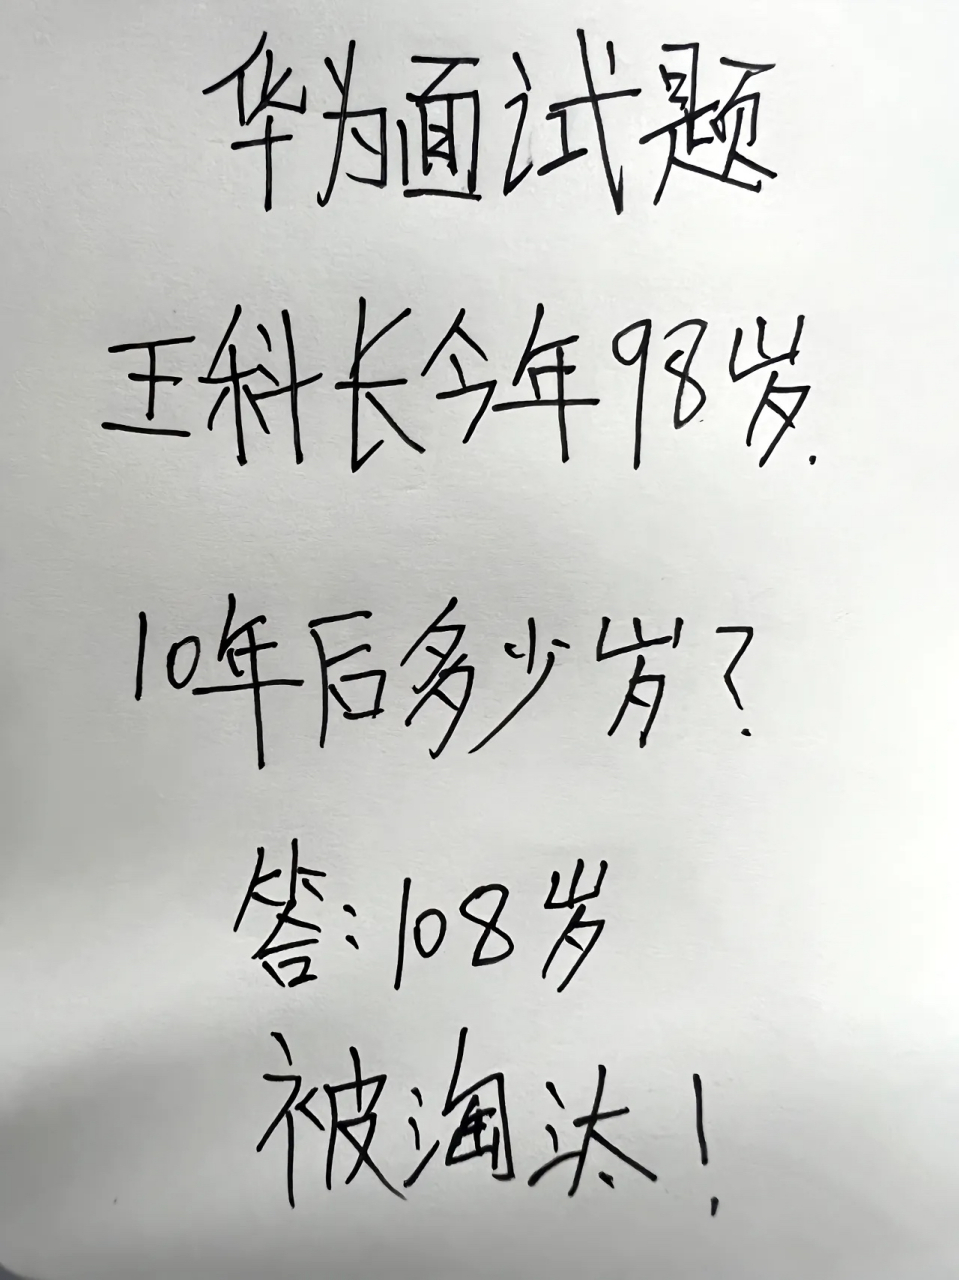 华为面试题
王科长今年98岁.
10年后多少岁?
答:108岁
被淘汰!